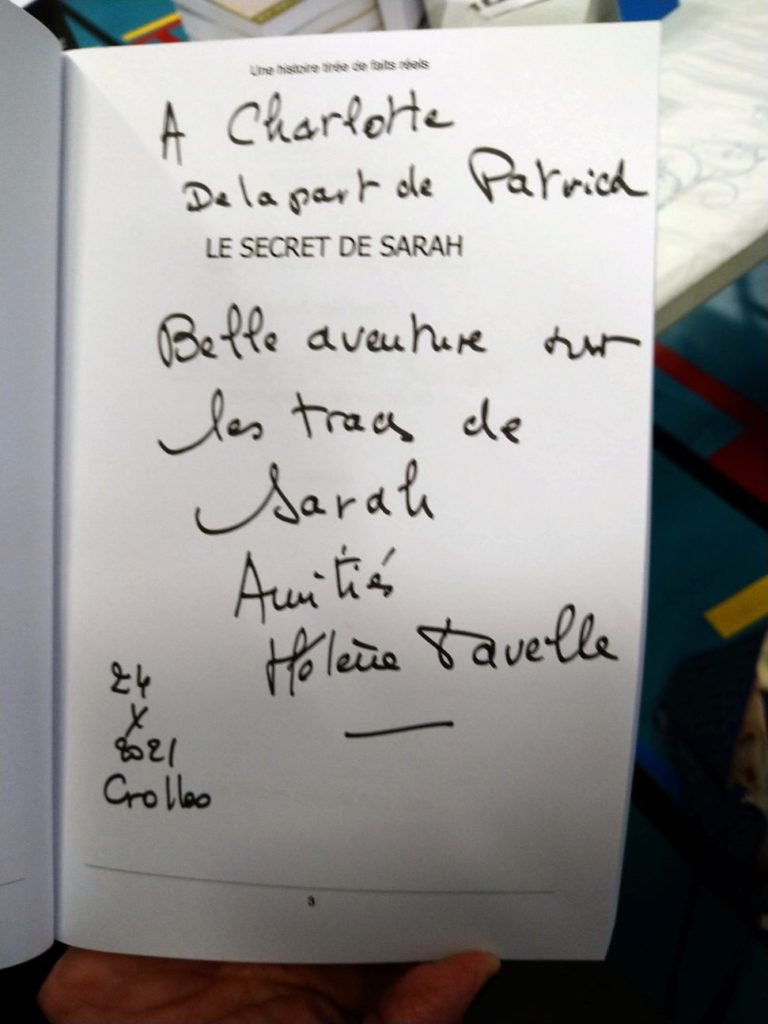 Une histoire tirée de faits réels
A Charlotte
De la part de Patrick
LE SECRET DE SARAH
Belle aventure sur
les traces de
Sarah
Amitiés
Hélène
24
X
2021
Crolles
3